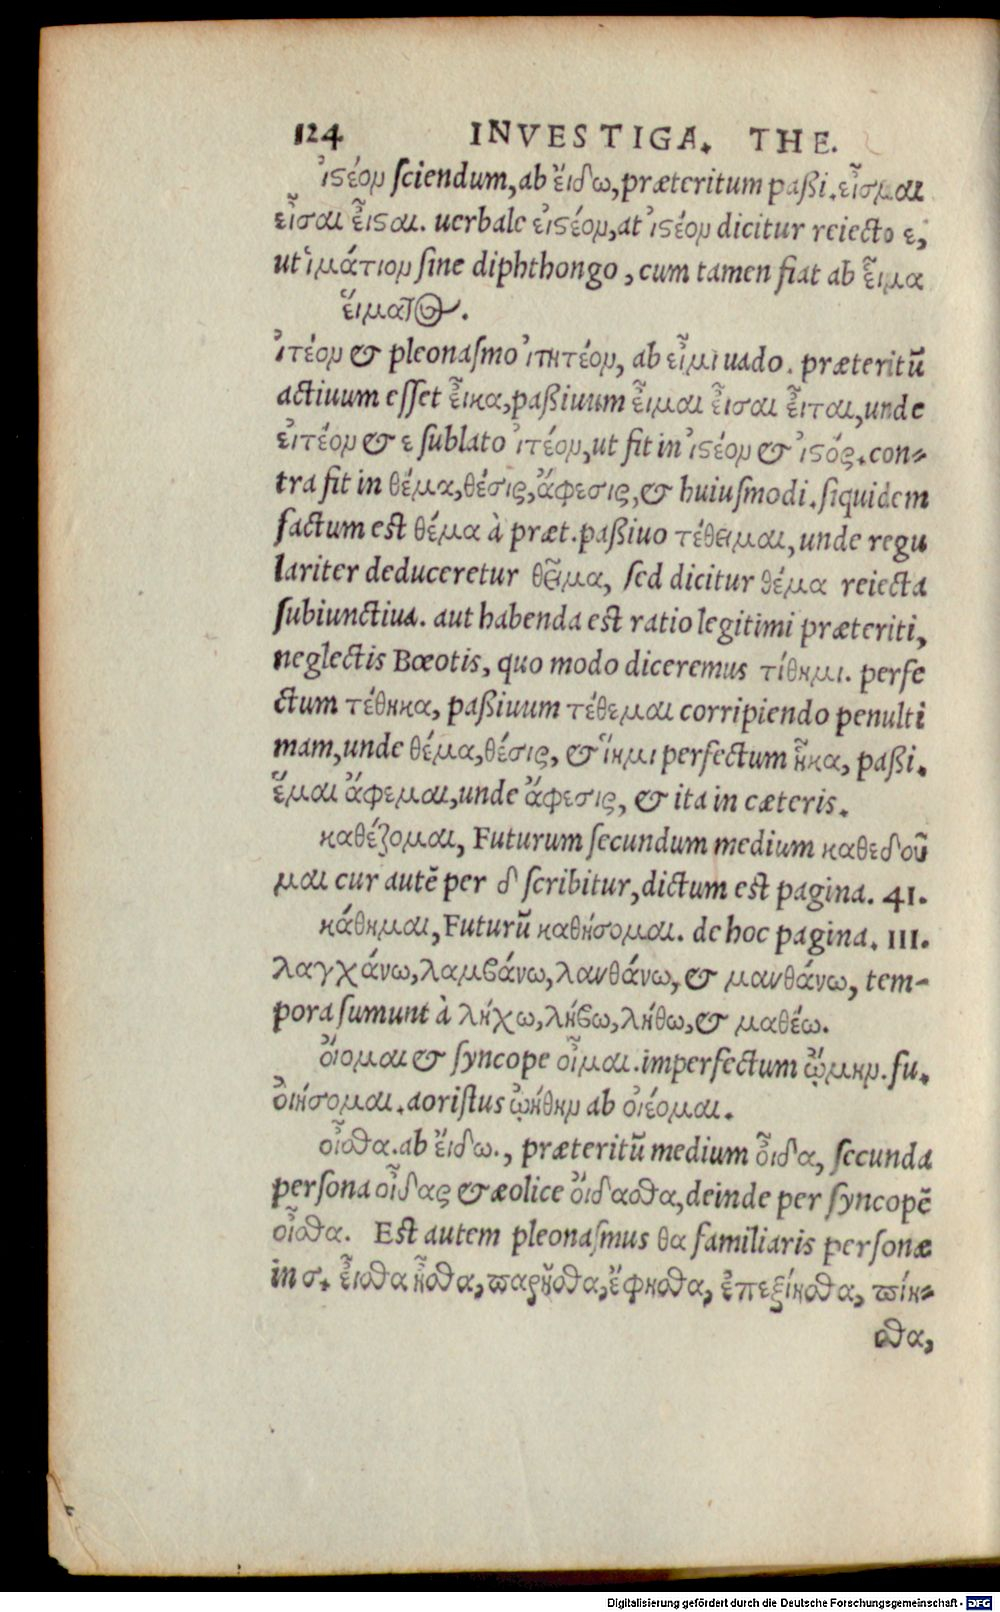 124 INVESTIGA. THE.
ἰστέον sciendum, ab ἔιδω, præteritum passi. εἶσμαι
εἶσαι ἔισται. uerbale εἰστέον, at ἰστέον dicitur reiecto ε,
ut ἱμάτιον sine diphthongo, cum tamen fiat ab εἷμα
εἵματος.
ἰτέον & pleonasmo ἰτητέον, ab εἶμι uado. præteritū
actiuum esset εἶκα, passiuum εἶμαι εἶσαι εἶται, unde
εἰτέον & ε sublato ἰτέον, ut fit in ἰστέον & ἰστός. con-
tra fit in θέμα, θέσις, ἄφεσις, & huiusmodi. siquidem
factum est θέμα à præt. passiuo τέθειμαι, unde regu
lariter deduceretur θεῖμα, sed dicitur θέμα reiecta
subiunctiua. aut habenda est ratio legitimi præteriti,
neglectis Bœotis, quo modo diceremus τίθημι. perfe
ctum τέθηκα, passiuum τέθεμαι corripiendo penulti
mam, unde θέμα, θέσις, & ἵημι perfectum ἧκα, passi.
ἕμαι ἄφεμαι, unde ἄφεσις, & ita in cæteris.
καθέζομαι, Futurum secundum medium καθεδοῦ
μαι cur autē per δ scribitur, dictum est pagina. 41.
κάθημαι, Futurū καθήσομαι. de hoc pagina. 111.
λαγχάνω, λαμβάνω, λανθάνω, & μανθάνω, tem-
pora sumunt à λήχω, λήβω, λήθω, & μαθέω.
ὄιομαι & syncope οἶμαι. imperfectum ᾤμην. fu.
ὀιήσομαι. aoristus ᾠήθην ab οἰέομαι.
οἶσθα. ab ἔιδω., præteritū medium οἶδα, secunda
persona οἶδας & æolice ὄιδασθα, deinde per syncopē
οἶσθα. Est autem pleonasmus θα familiaris personæ
in σ. εἶσθα ἦσθα, παρῆσθα, ἔφησθα, ἐπεξίησθα, πίη-
σθα,
Digitalisierung gefördert durch die Deutsche Forschungsgemeinschaft - DFG